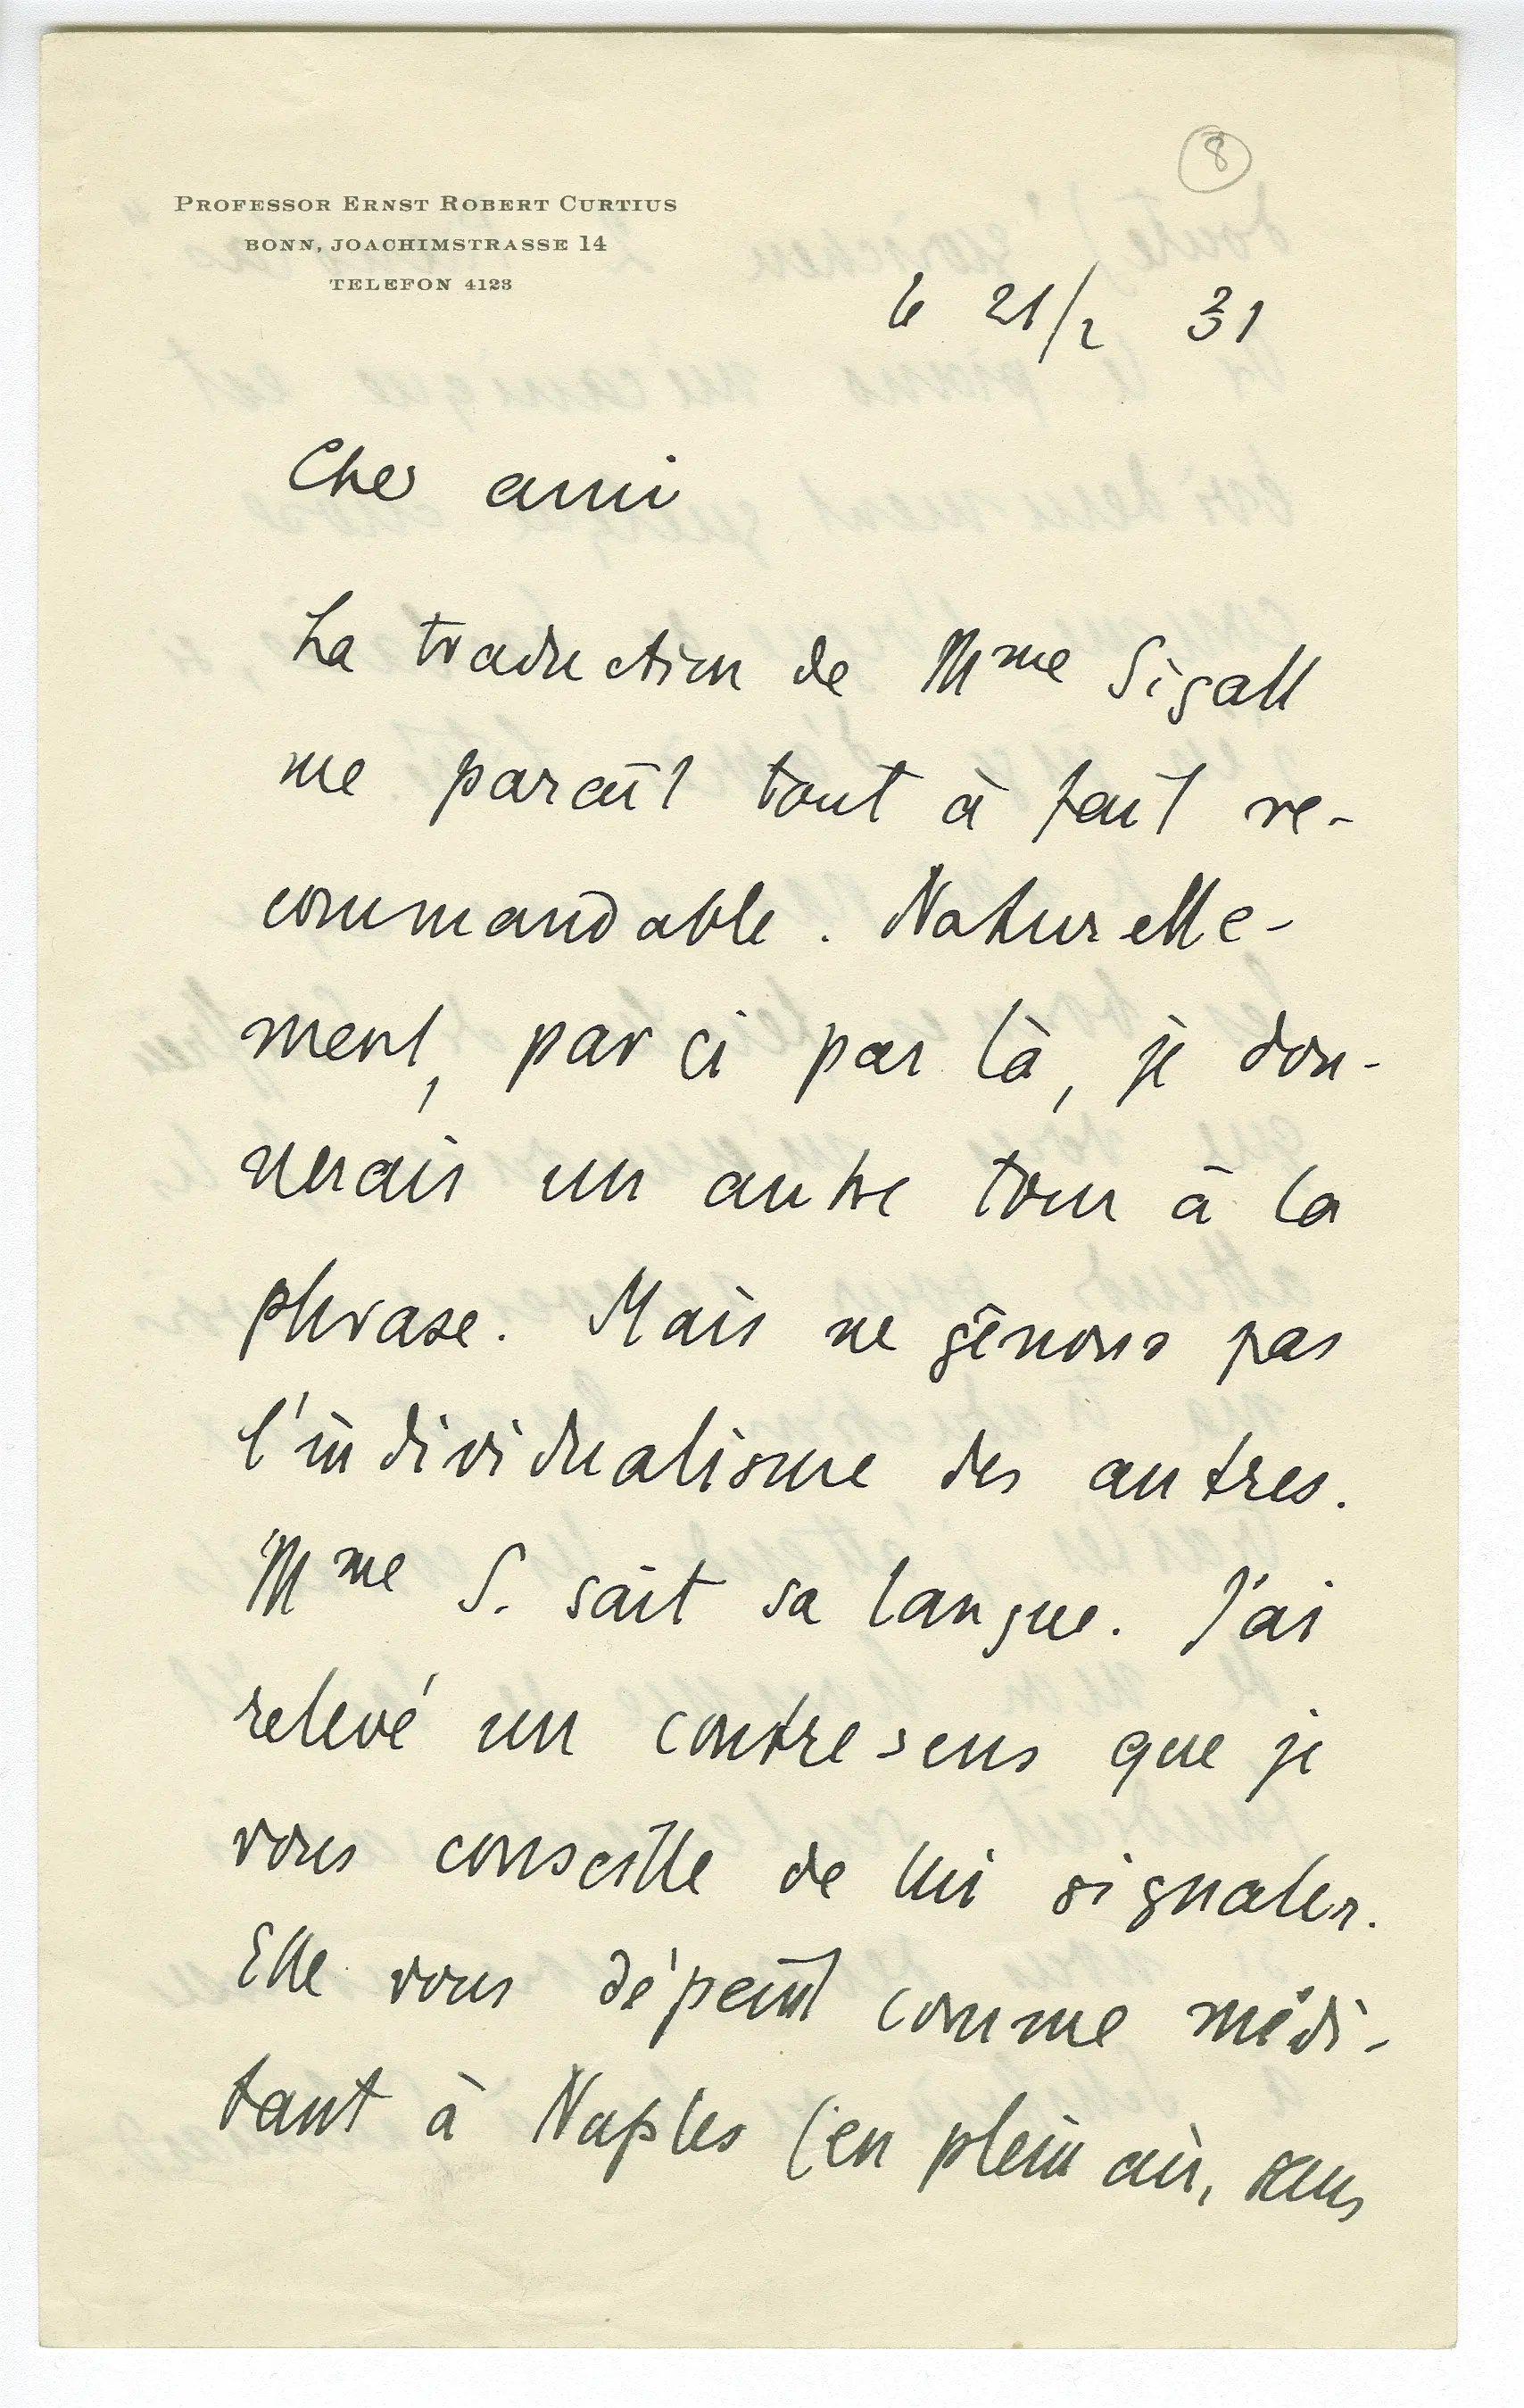 8
PROFESSOR ERNST ROBERT CURTIUS
BONN, JOACHIMSTRASSE 14
TELEFON 4123
le 21/2 31
Cher ami
La traduction de Mme Sigall
me paraît tout à fait re-
commandable. Naturelle-
ment, par ci par là, je don-
nerais un autre tour à la
phrase. Mais ne gênons pas
l'individualisme des autres.
Mme S. sait sa langue. J'ai
relevé un contresens que je
vous conseille de lui signaler.
Elle vous dépeint comme médi-
tant à Naples (en plein air, sans